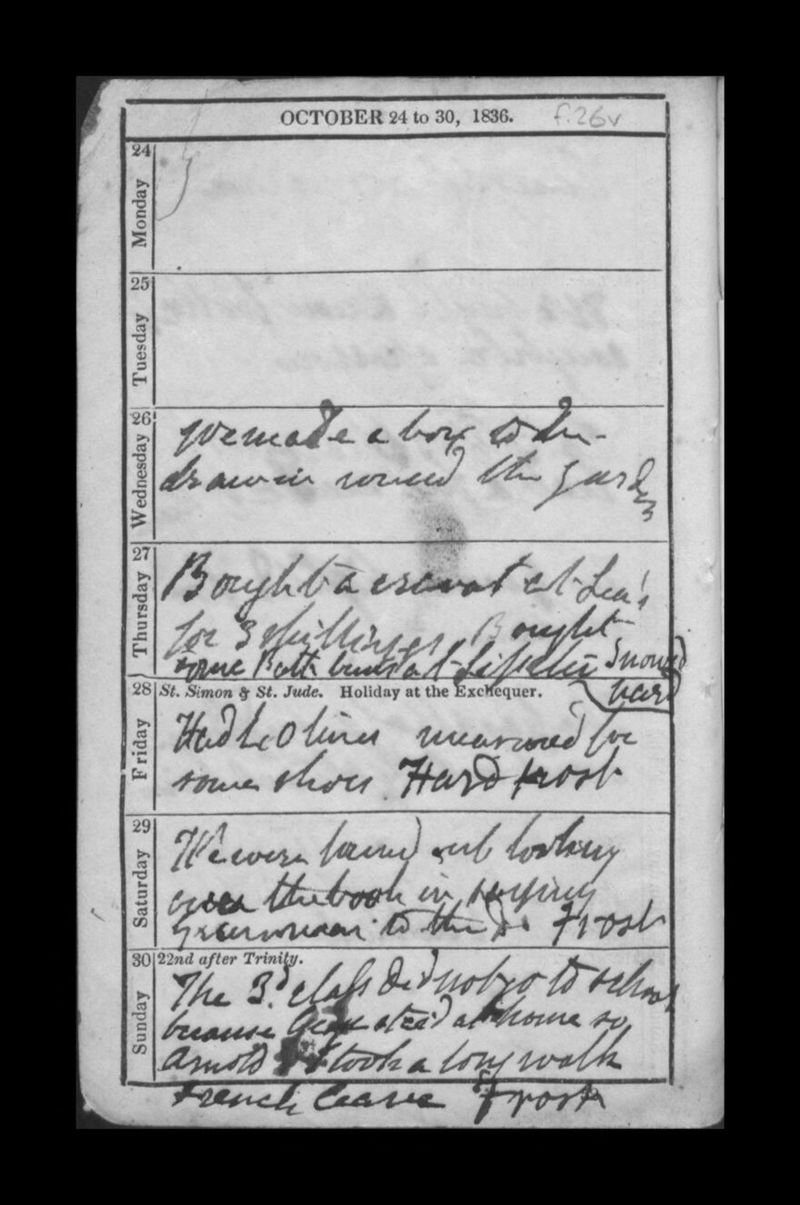 OCTOBER 24 to 30, 1836. f.26v
24
Monday
25
Tuesday
26
Wednesday
We made a box to be
drawn in round the garden
27
Thursday
Bought a cravat at Lea's
for 3 shillings Bought
some Bath buns at Snowed
hard
28 St. Simon & St. Jude. Holiday at the Exchequer.
Friday
Had measured for
some shoes Hard frost
29
Saturday
We were found out looking
over the book in saying
to the Dr Frost
30 22nd after Trinity.
Sunday
The 3.d class did not go to school
because staid at home so
Arnold & I took a long walk
French leave Frost